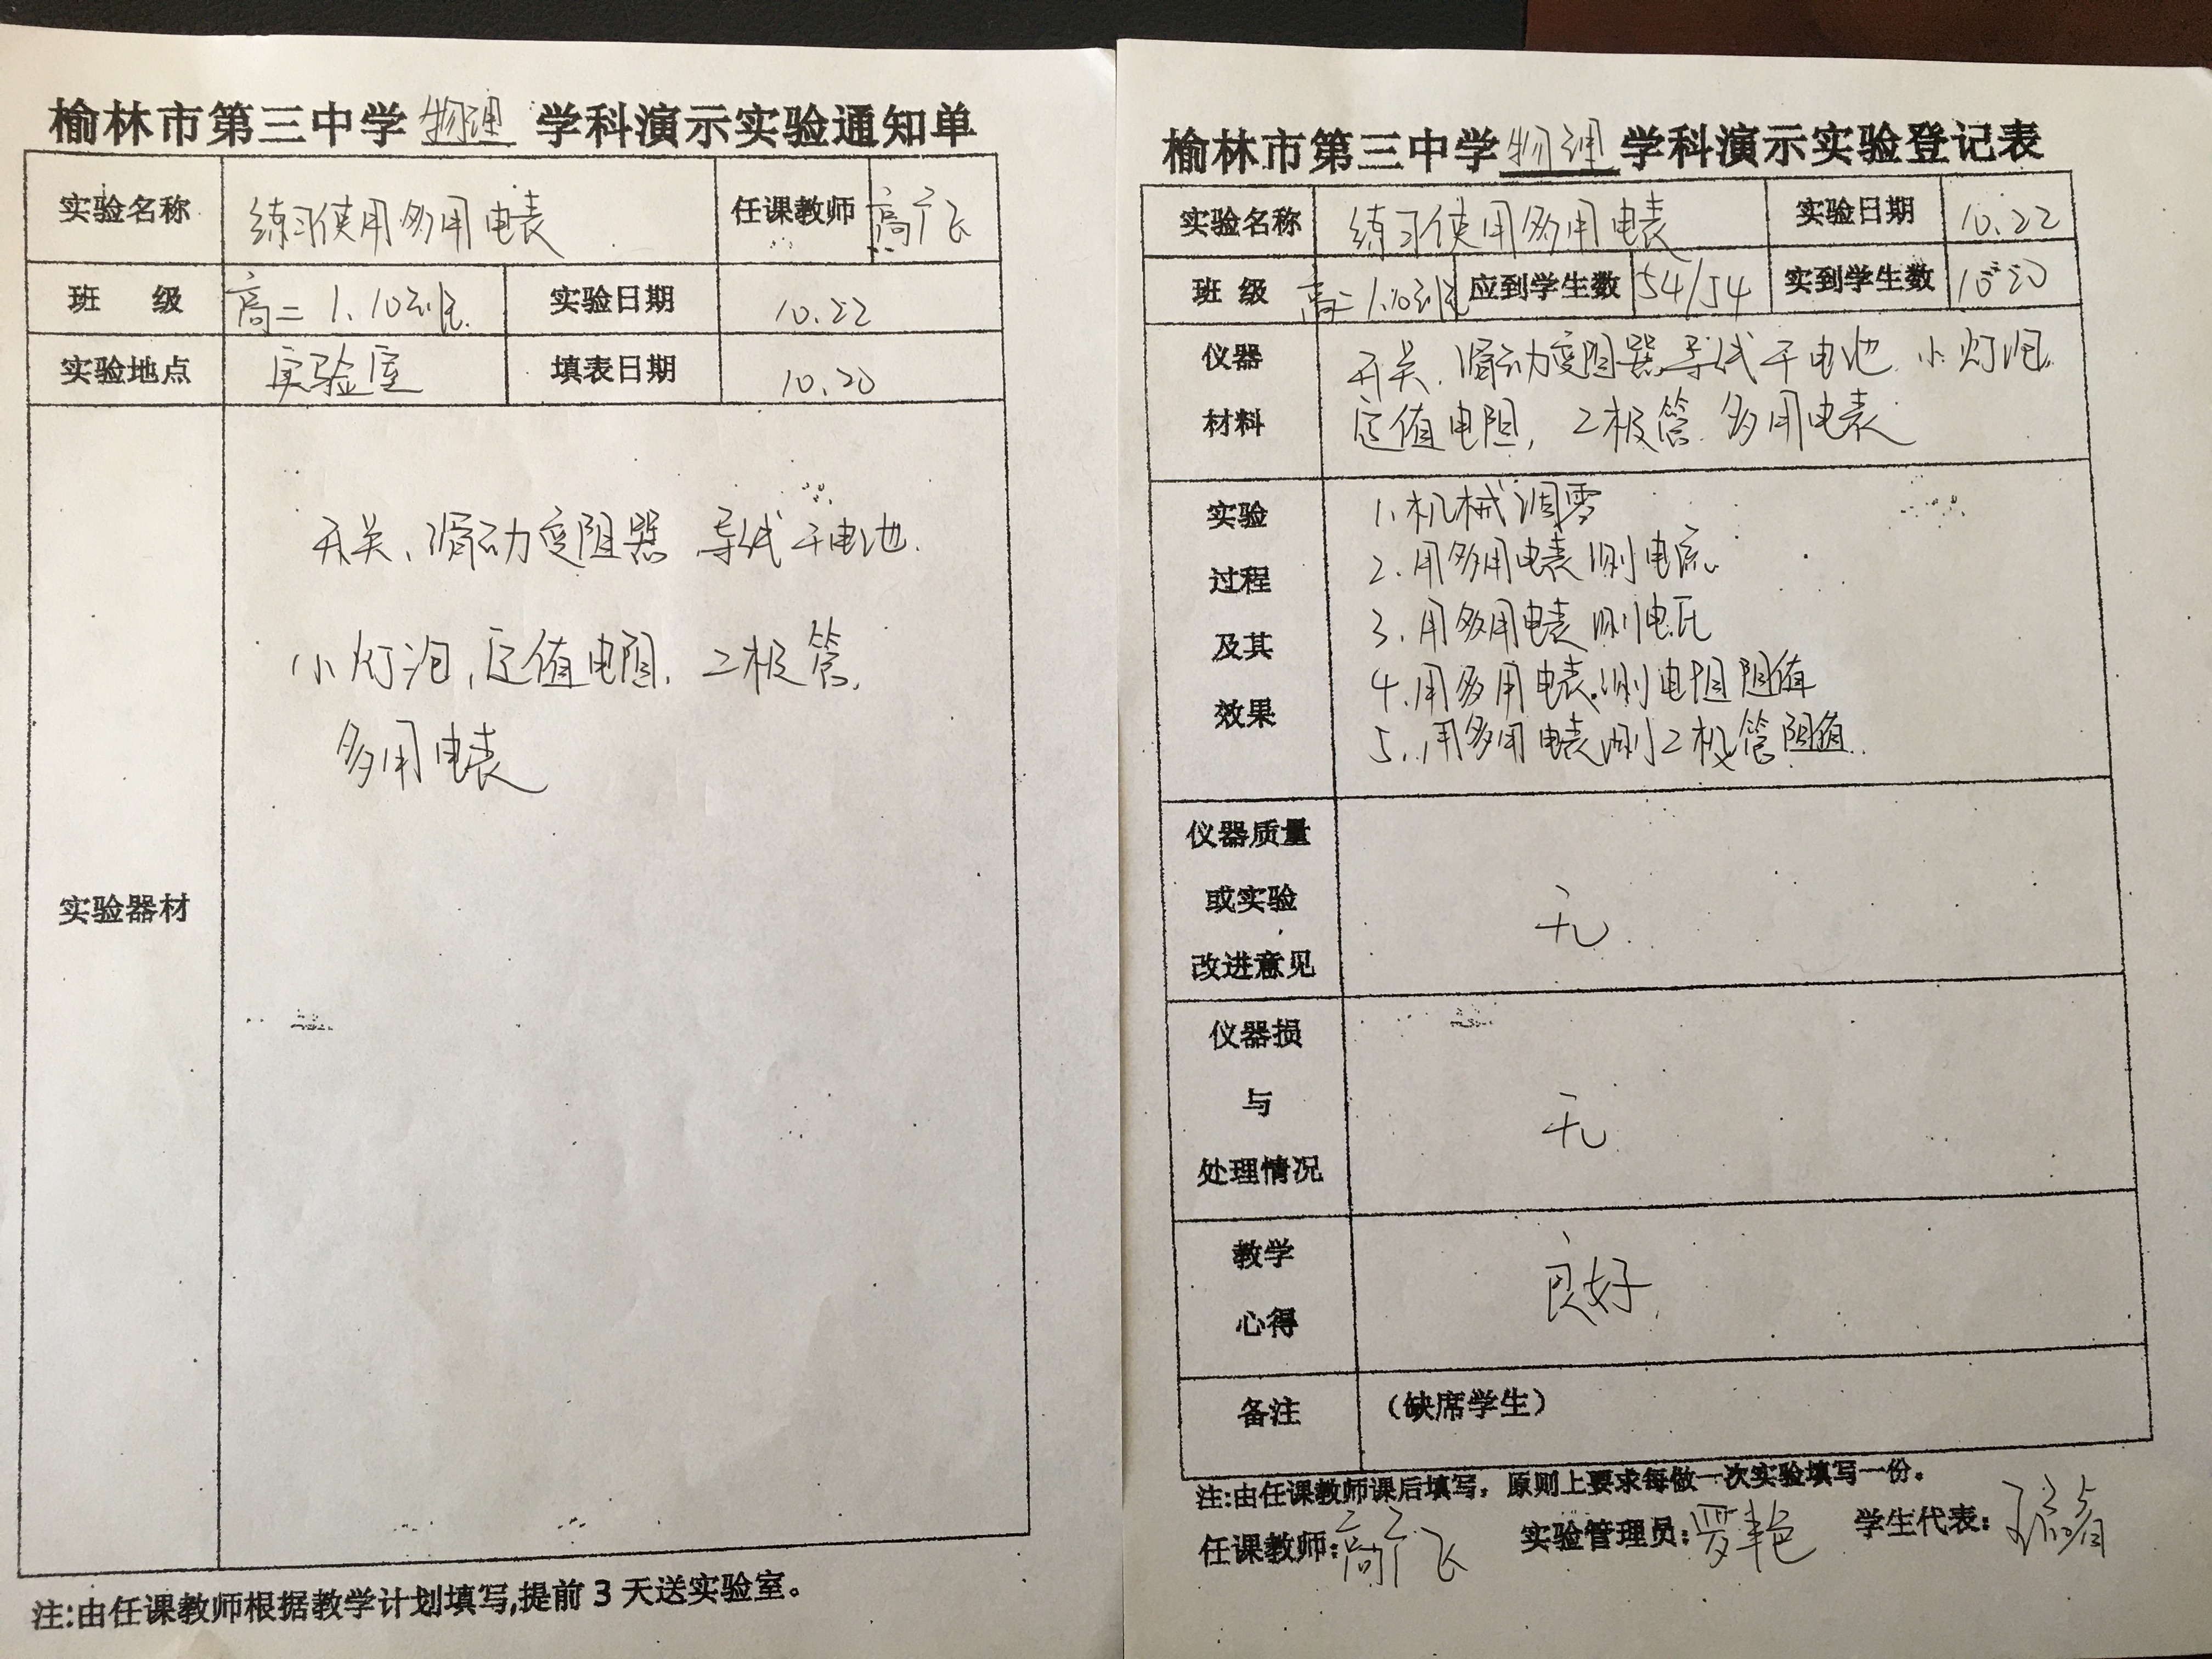 榆林市第三中学物理学科演示实验通知单
实验名称 练习使用多用电表 任课教师 高广飞
班 级 高二 1.10班 实验日期 10.22
实验地点 实验室 填表日期 10.20
实验器材
开关、滑动变阻器 导线 干电池.
小灯泡,定值电阻. 2极管,
多用电表
注:由任课教师根据教学计划填写,提前3天送实验室。
榆林市第三中学物理学科演示实验登记表
实验名称 练习使用多用电表 实验日期 10.22
班 级 高二 1.10班 应到学生数 54/54 实到学生数
仪器 开关.滑动变阻器 导线 干电池 小灯泡.
材料 定值电阻, 2极管.多用电表
实验 1.机械调零
2.用多用电表测电流
过程 3.用多用电表测电压
及其 4.用多用电表测电阻阻值
效果 5.用多用电表测2极管阻值.
仪器质量
或实验 无.
改进意见
仪器损
与 无.
处理情况
教学 良好.
心得
备注 (缺席学生)
注:由任课教师课后填写，原则上要求每做一次实验填写一份。
任课教师:高广飞 实验管理员: 学生代表: